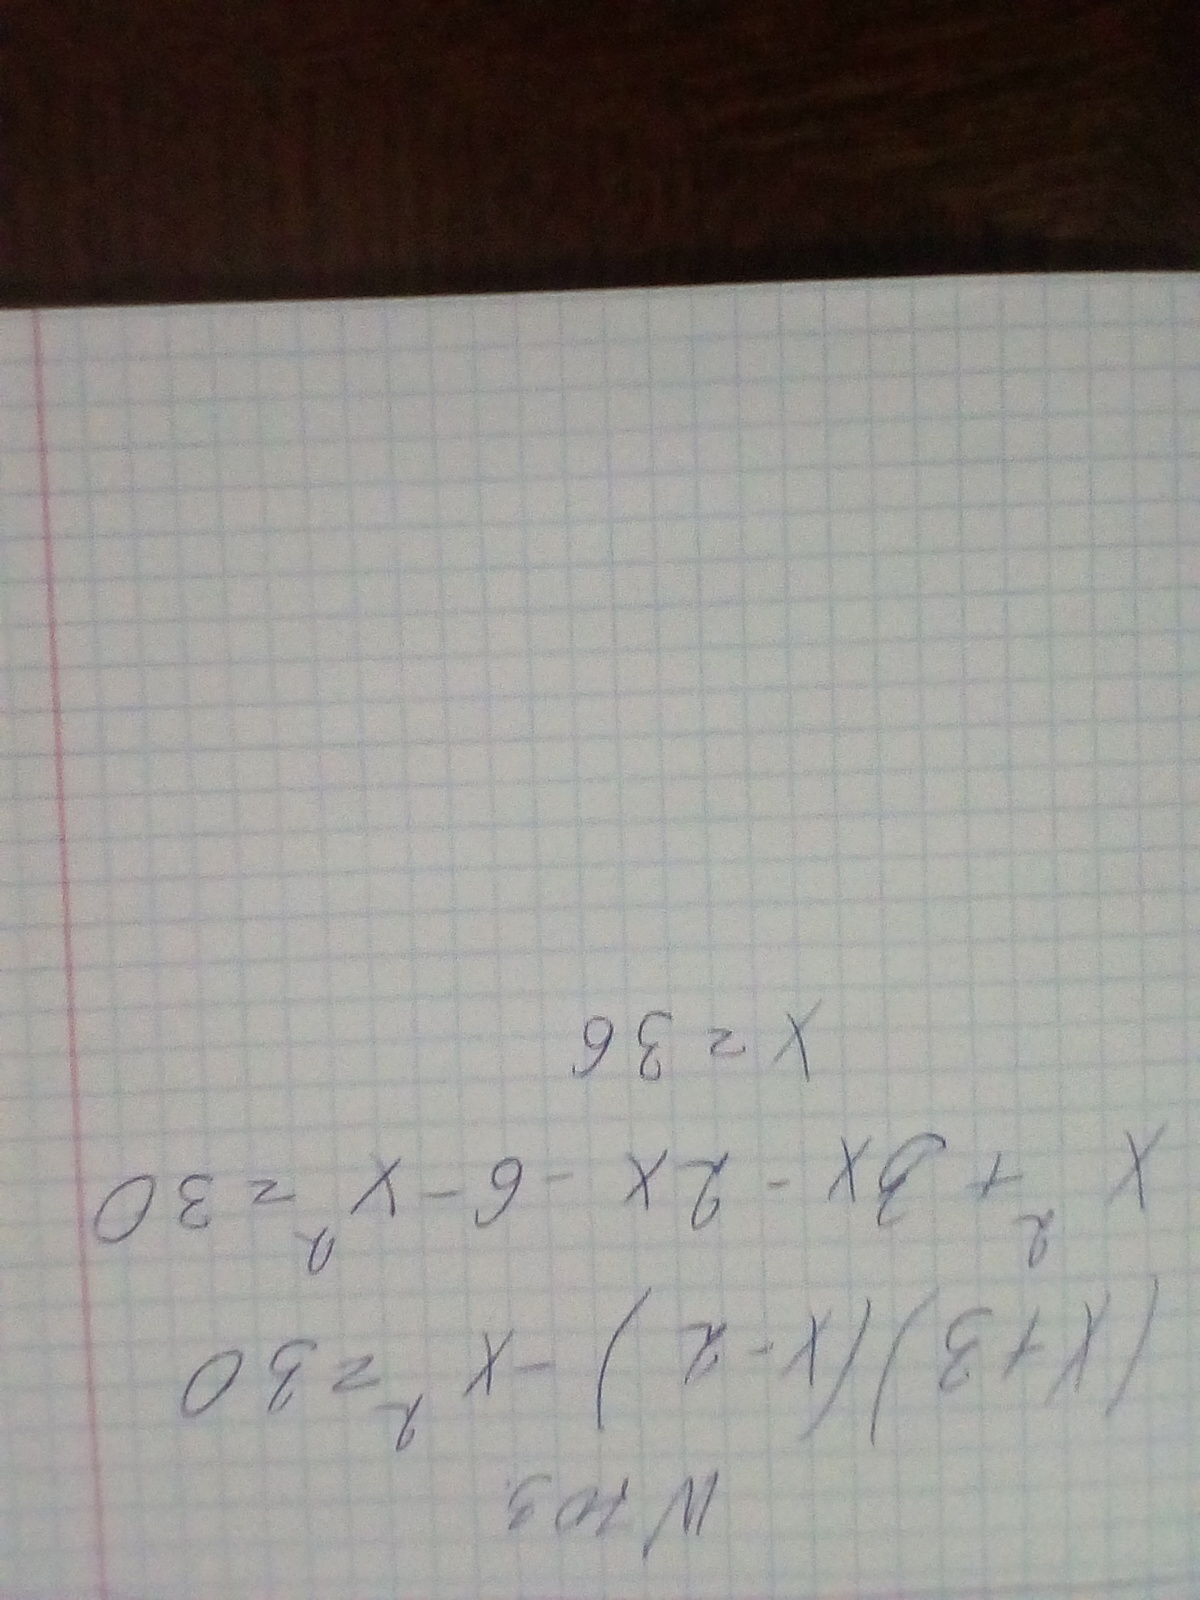 N 703.
(x+3)(x-2)-x²=30
x²+3x-2x-6-x²=30
x=36